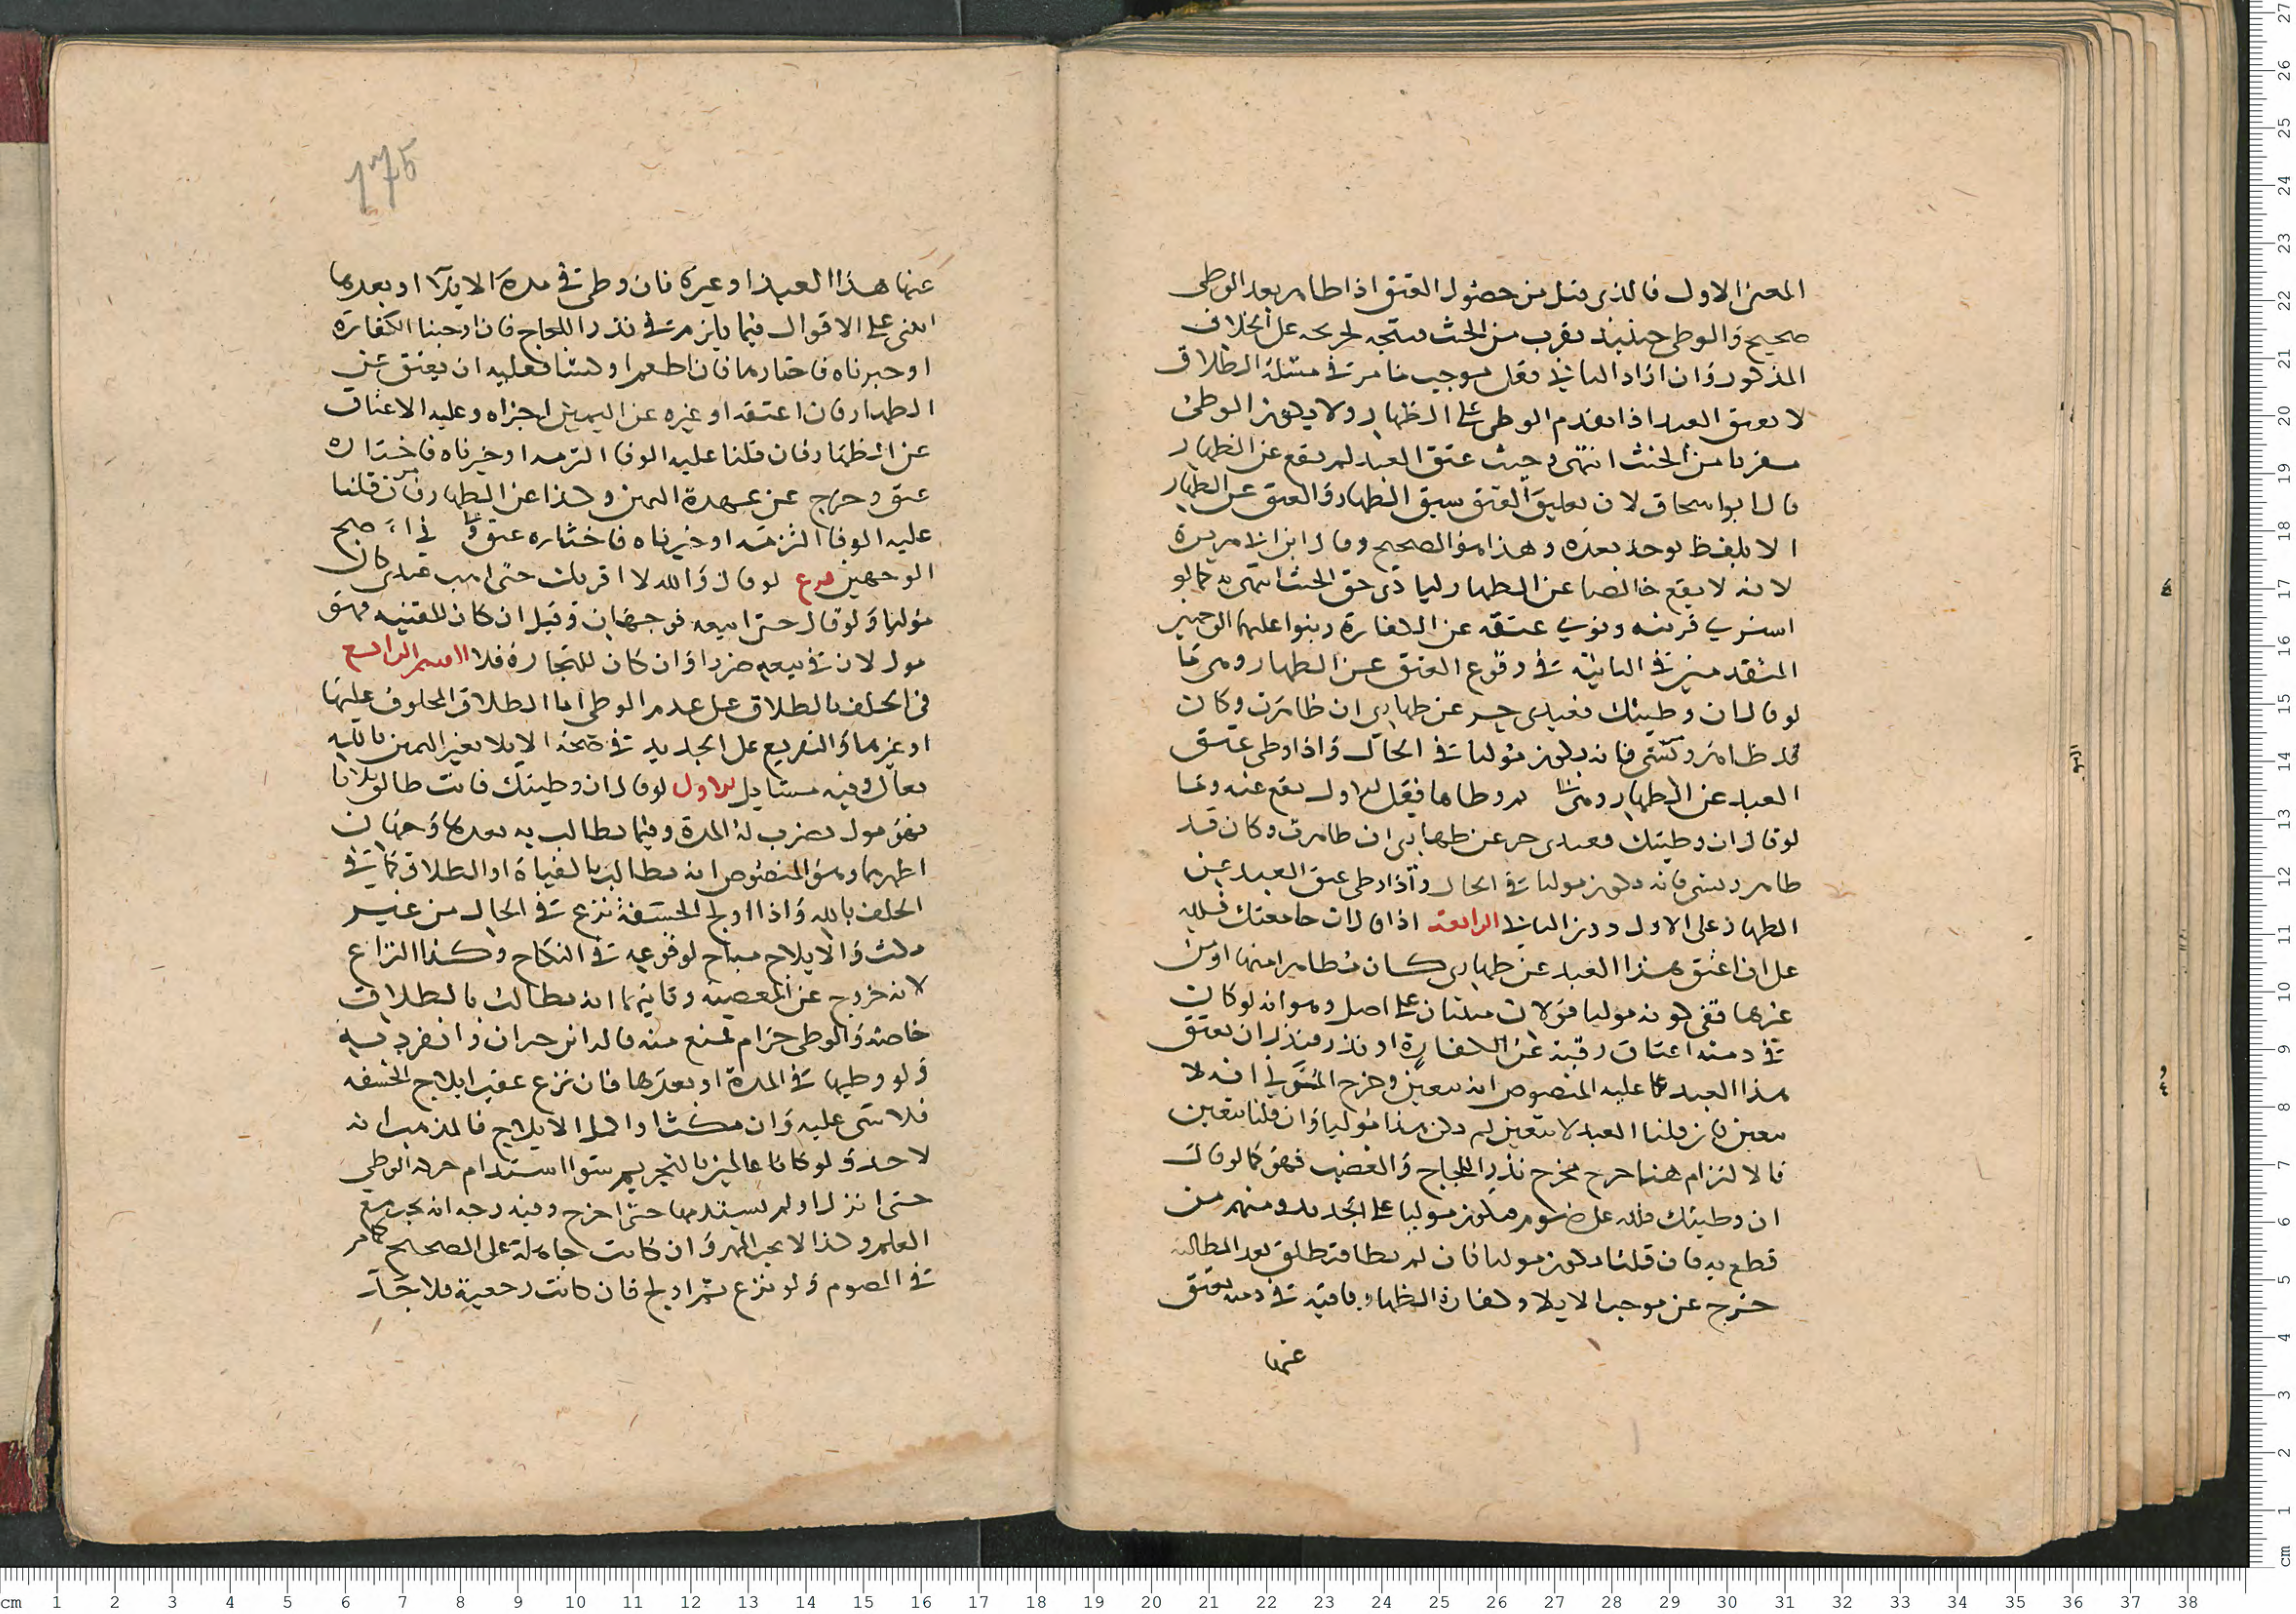 المعنى الاول فالذي قيل من حصول العتق اذا ظاهر بعد الوطي
صحيح والوطي حينئذ يقرب من الحنث متجه لحريجه على الخلاف
المذكور وان اراد الثاني فقل موجب ما مر في مسئلة الطلاق
لا يعتق العبد اذا تقدم الوطي على الظهار ولا يكون الوطي
مقربا من الحنث انتهى وحيث عتق العبد لم يقع عن الظهار
قال ابو اسحاق لان تعليق العتق سبق الظهار والعتق عن الظهار
الا بلفظ يوجد بعده وهذا هو الصحيح وقال ابن ابي هريرة
لانه لا يقع خالصا عن الظهار ليادي حق الحنث انتهى به كما لو
اشترى قريبه ونوى عتقه عن الكفارة وبنوا عليهما الوجهين
المتقدمين في الثانية في وقوع العتق عن الظهار ومرتا
لو قال ان وطيتك فعبدي حر عن ظهاري ان ظاهرت وكان
قد ظاهر ونسي فانه يكون موليا في الحال واذا وطي عتق
العبد عن الظهار ومتى لم يوطاها فقيل الاول يقع عنه وثما
لو قال ان وطيتك فعبدي حر عن ظهاري ان ظاهرت وكان قد
ظاهر ونسي فانه يكون موليا في الحال واذا وطي عتق العبد عن
الظهار على الاول دون الثاني الرابعة اذا قال ان جامعتك فلله
على ان اعتق هذا العبد عن ظهاري كان مظاهرا منها او من
غيرها ففي كونه موليا قولان مبنيان على اصل وهو انه لو كان
في ذمته اعتاق رقبة عن الكفارة او نذر فنذر ان يعتق
هذا العبد عما عليه المنصوص انه يتعين وخرج المزني انه لا
يتعين فان قلنا العبد لا يتعين لم يكن هذا موليا وان قلنا يتعين
فالالتزام هنا خرج مخرج نذر اللجاج والغضب فهو كما لو قال
ان وطيتك فلله على صوم فيكون موليا على الجديد ومنهم من
قطع به فان قلنا يكون موليا فان لم يطا فتطلق بعد المطالبة
خرج عن موجب الايلا وكفارة الظهار باقية في ذمته يعتق
عنها
175
عنها هذا العبد او غيره فان وطي في مدة الايلا او بعدها
انبنى على الاقوال فيما يلزمه في نذر اللجاج فان اوجبنا الكفارة
او خيرناه فاختارها فان اطعم او كسا فعليه ان يعتق عن
الظهار وان اعتقه او غيره عن اليمين اجزاه وعليه الاعتاق
عن الظهار فان قلنا عليه الوفا التزمه او خيرناه فاختاره
عتق وخرج عن عهدة اليمين وكذا عن الظهار فان قلنا
عليه الوفا التزمه او خيرناه فاختاره عتق في اصح
الوجهين فرع لو قال والله لا اقربك حتى اهب عبدي كان
موليا ولو قال حتى ابيعه فوجهان وقيل ان كان للقنيه فهو
مول لان في بيعه ضررا وان كان للتجارة فلا القسم الرابع
في الحلف بالطلاق على عدم الوطي اما الطلاق المحلوف عليها
او غيرها والتفريع على الجديد في صحة الايلا بغير اليمين بالله
تعالى وفيه مسايل الاولى لو قال ان وطيتك فانت طالق ثلاثا
فهو مول يضرب له المدة وفيما يطالب به بعدها وجهان
اظهرهما وهو المنصوص انه يطالب بالفياة او الطلاق كما في
الحلف بالله واذا اولج الحشفة نزع في الحال من غير
مكث والايلاج مباح لوقوعه في النكاح وكذا النزاع
لانه خروج عن المعصية وثانيهما انه يطالب بالطلاق
خاصة والوطي حرام يمنع منه قاله ابن خيران وانفرد به
ولو وطيها في المدة او بعدها فان نزع عقيب ايلاج الحشفه
فلا شى عليه وان مكث او اكمل الايلاج فالمذهب انه
لا حد ولو كانا عالمين بالتحريم سوا استدام حركة الوطي
حتى انزل او لم يستدمها حتى اخرج وفيه وجه انه يجب مع
العلم وكذا لا يجب المهر وان كانت جاهلة على الصحيح كما مر
في الصوم ولو نزع ثم اولج فان كانت رجعية فلا حد